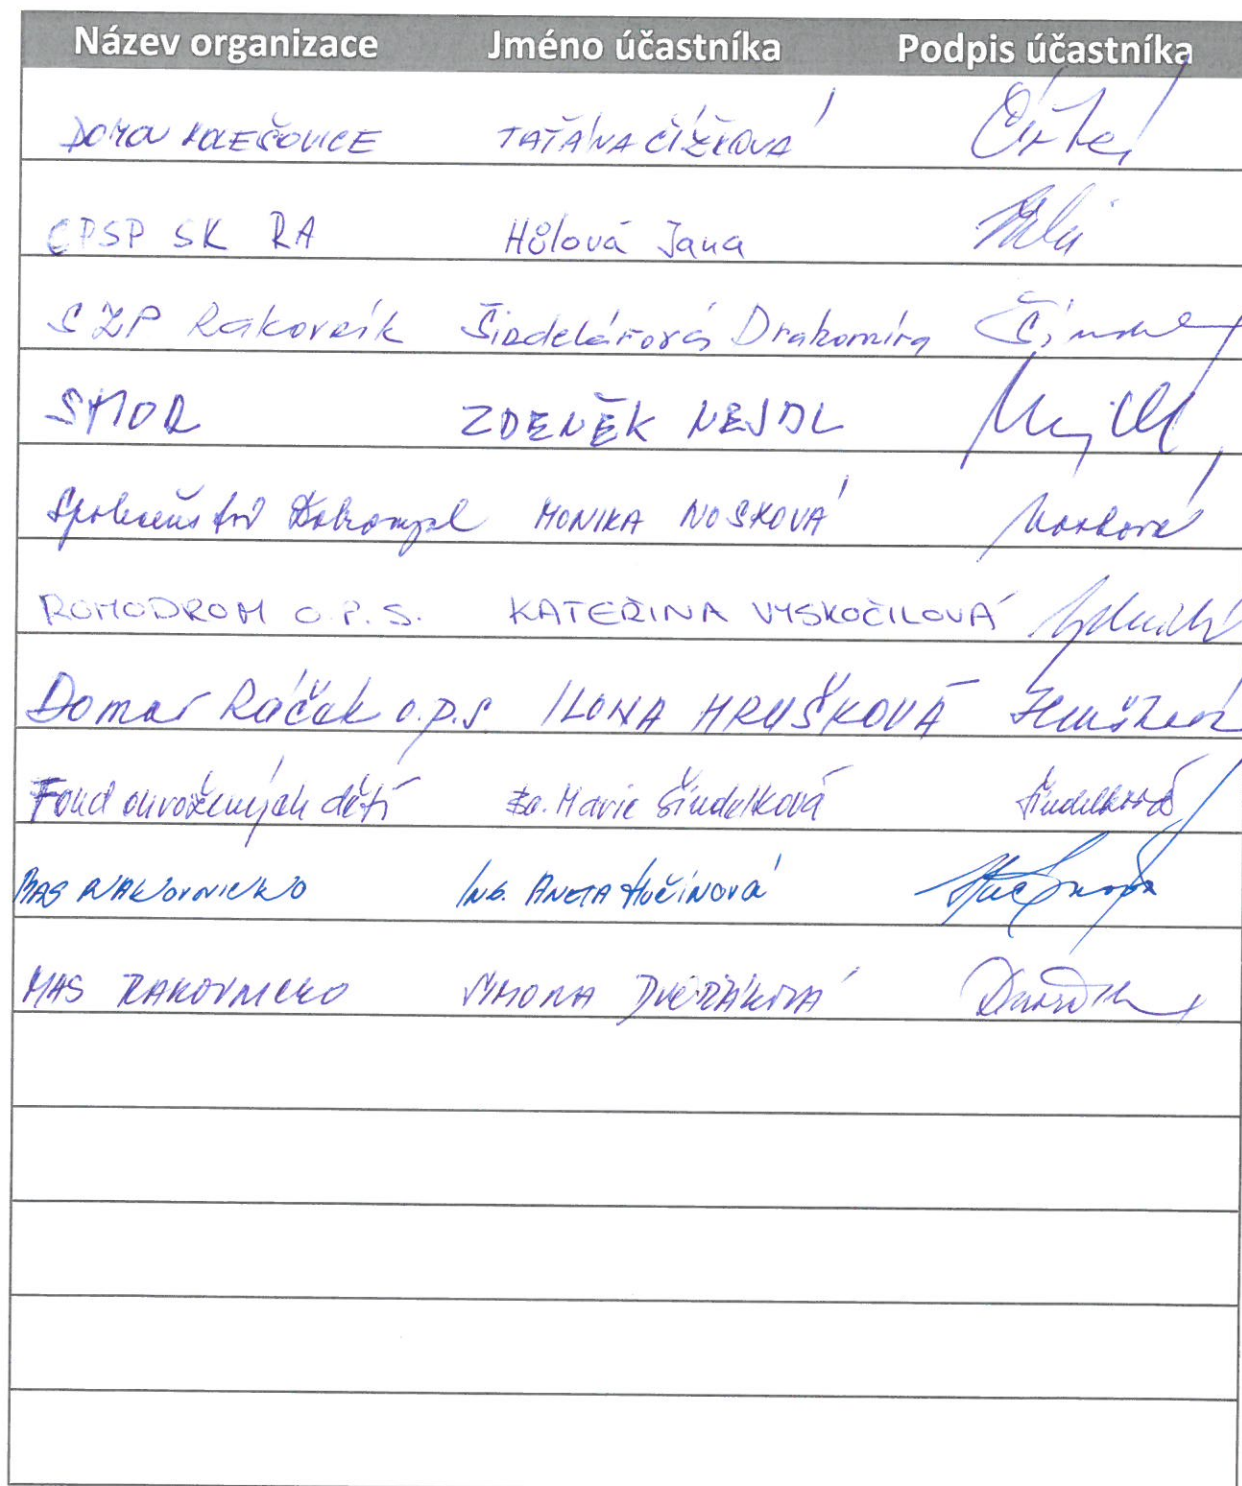 Název organizace Jméno účastníka Podpis účastníka
DOMOV KOLEŠOVICE TAŤÁNA ČÍŽKOVÁ
CPSP SK RA Hůlová Jana
SZP Rakovník Šindelářová Drahomíra
SMOR ZDENĚK NEJDL
Společenství Dobromysl MONIKA NOSKOVÁ Nosková
ROMODROM O.P.S. KATEŘINA VYSKOČILOVÁ
Domov Ráček o.p.s ILONA HRUŠKOVÁ
Fond ohrožených dětí Marie Šindelková Šindelková
MAS RAKOVNICKO ING. ANETA HUČÍNOVÁ
MAS RAKOVNICKO SIMONA DVOŘÁKOVÁ